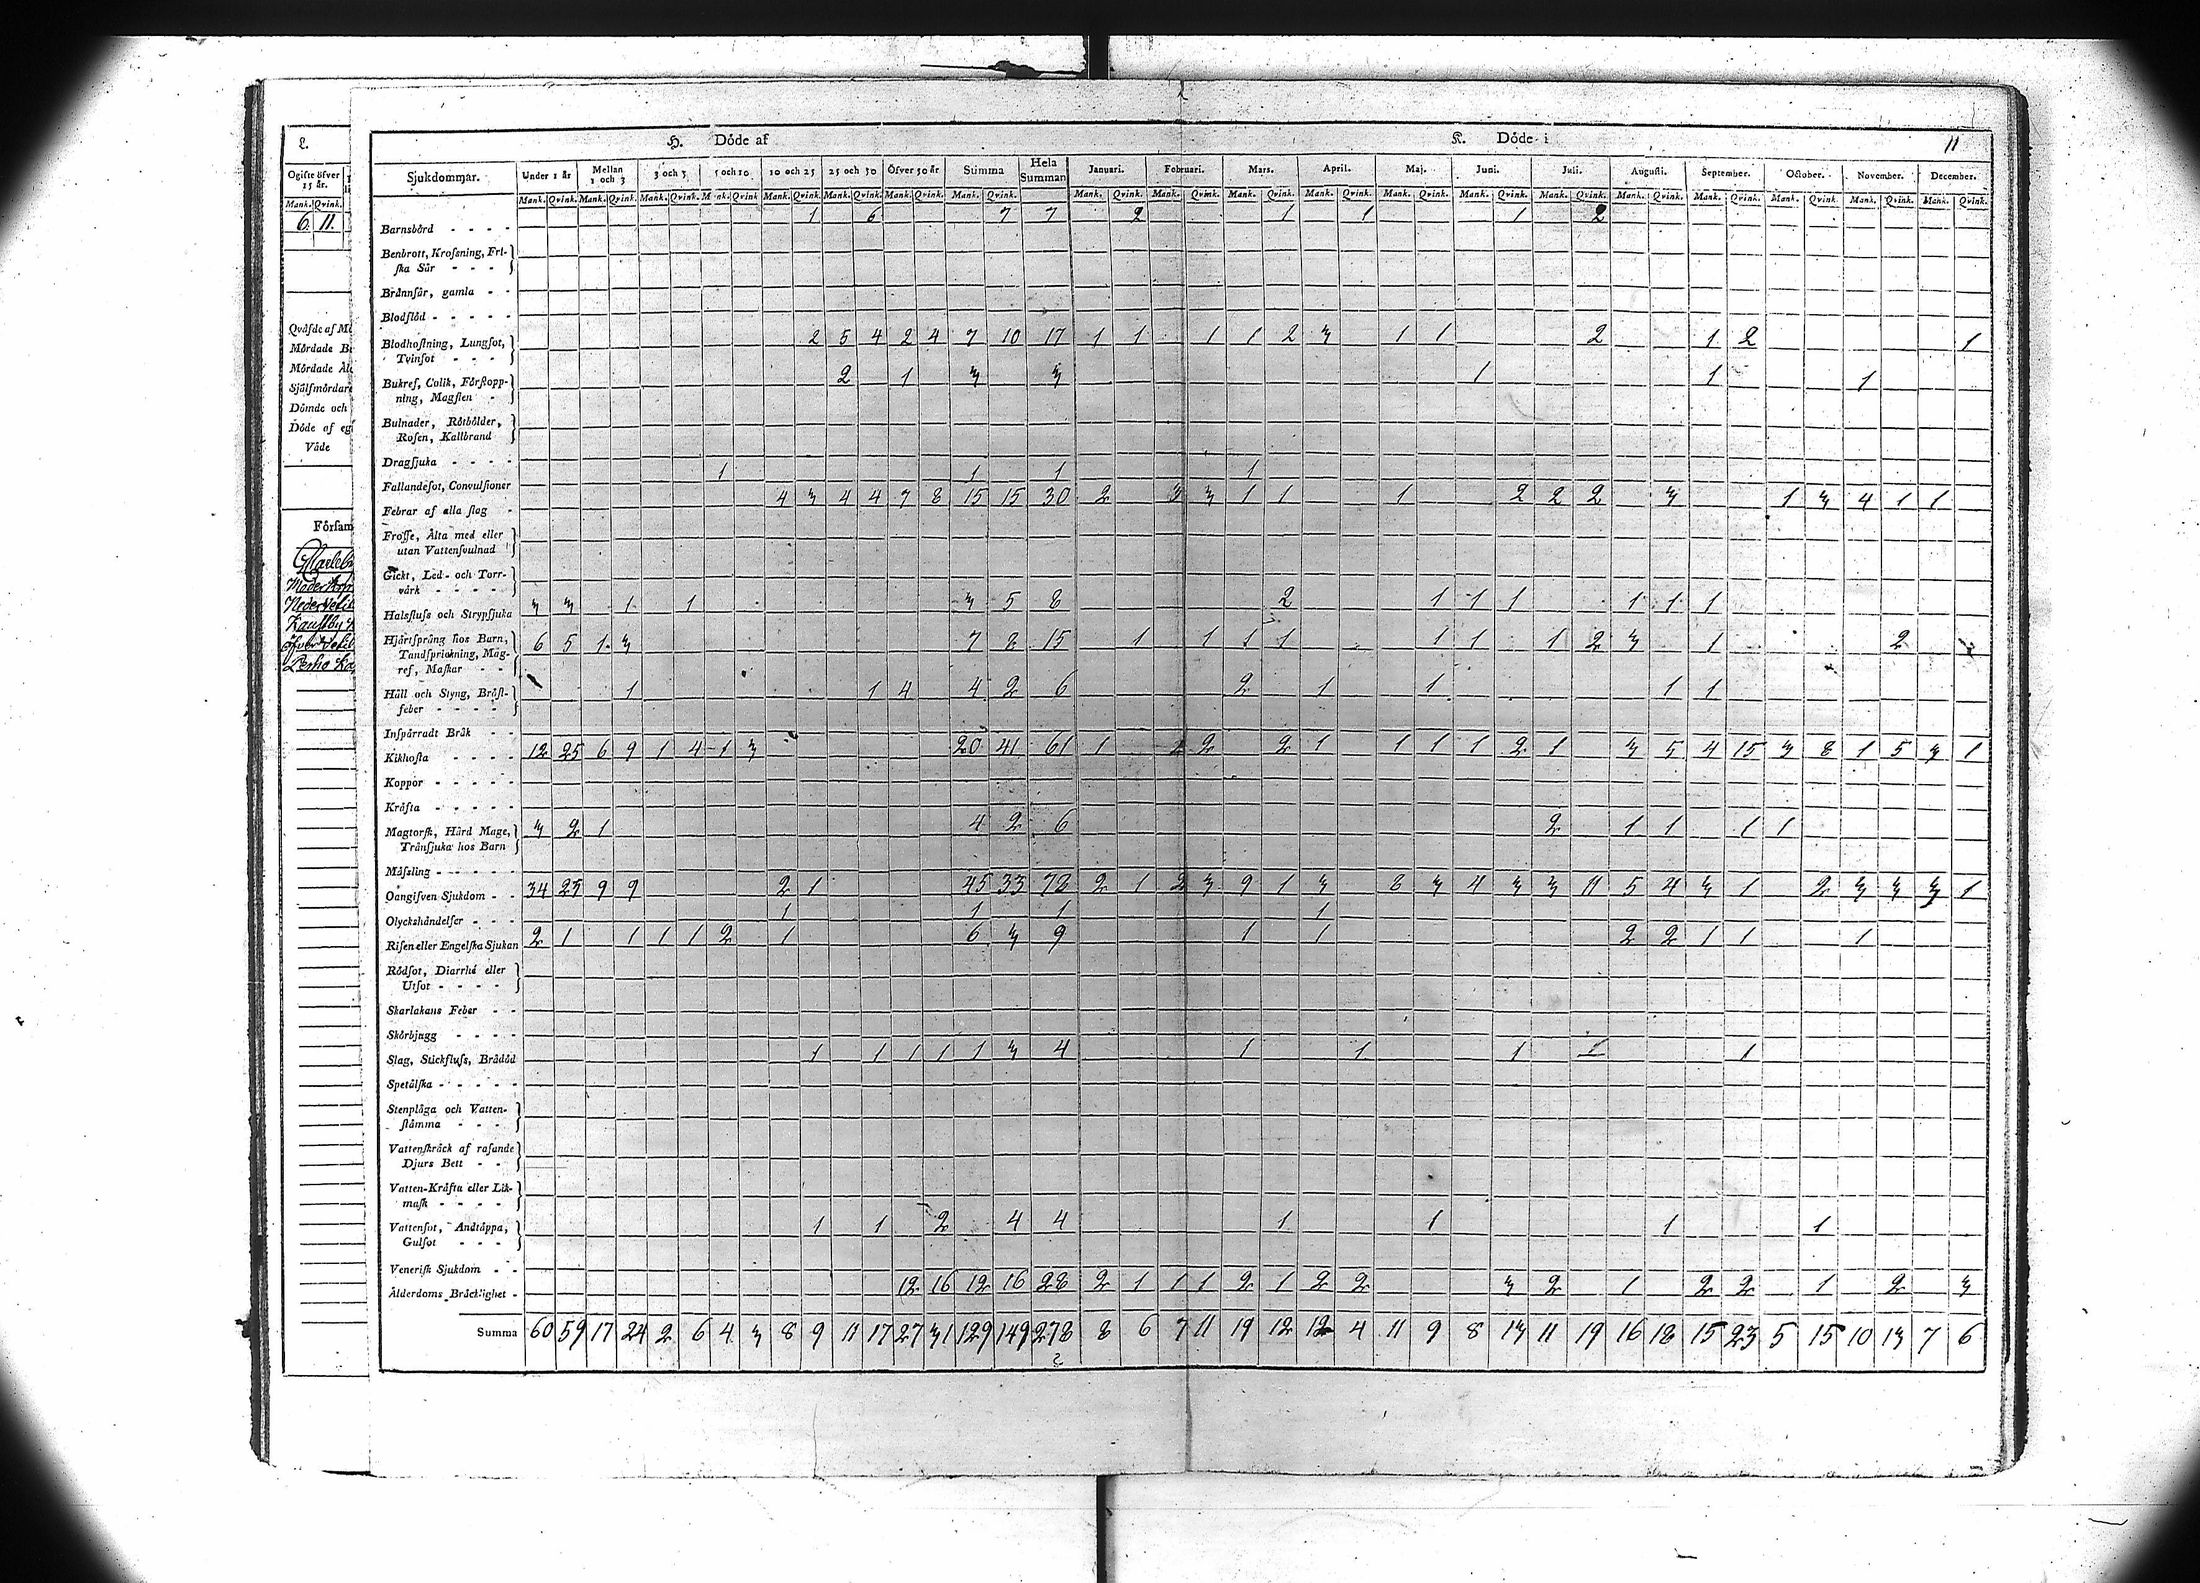 2.
Ogifte öfver
15 år.
Mank. Qvink.
6. 11.
Qväfde af
Mördade
Mördade
Sjålfmördare
Dömde och
Döde af
Våde
Församl
H. Döde af
K. Döde i
11
Sjukdommar. Under 1 år Mellan 1 och 3 3 och 5 5 och 10 10 och 25 25 och 50 Öfver 50 år Summa Hela Summan Januari. Februari. Mars. April. Maj. Juni. Juli. Augusti. September. October. November. December.
Mank. Qvink. Mank. Qvink. Mank. Qvink. Mank. Qvink. Mank. Qvink. Mank. Qvink. Mank. Qvink. Mank. Qvink. Mank. Qvink. Mank. Qvink. Mank. Qvink. Mank. Qvink. Mank. Qvink. Mank. Qvink. Mank. Qvink. Mank. Qvink. Mank. Qvink. Mank. Qvink. Mank. Qvink. Mank. Qvink.
Barnsbörd - - - - 1 6 7 7 2 1 1 1 2
Benbrott, Krofsning, Fri-
ska Sår - - -
Brånnsår, gamla - -
Blodflöd - - - - -
Blodhostning, Lungsot, 2 5 4 2 4 7 10 17 1 1 1 1 2 3 1 1 2 1 2 1
Tvinsot - - -
Bukref, Colik, Förstopp- 2 1 3 3 1 1 1
ning, Magsten -
Bulnader, Rötbölder,
Rosen, Kallbrand
Dragsjuka - - - -
Fallandesot, Convulsioner 1 1 1 1
Febrar af alla slag - 4 3 4 4 7 8 15 15 30 2 3 3 1 1 1 2 2 2 3 1 3 4 1 1
Frosse, Ålta med eller
utan Vattensvulnad
Gickt, Led- och Torr-
vårk - - - -
Halsfluss och Strypsjuka 3 3 1 1 3 5 8 2 1 1 1 1 1 1
Hjårtsprång hos Barn, 6 5 1 3 7 8 15 1 1 1 1 1 1 1 2 3 1 2
Tandsprickning, Mag-
ref, Maskar - -
Håll och Styng, Bröst- 1 1 4 4 2 6 2 1 1 1 1
feber - - - -
Inspårradt Bråk - -
Kikhosta - - - - 12 25 6 9 1 4 1 3 20 41 61 1 2 2 2 1 1 1 1 2 1 3 5 4 15 3 8 1 5 3 1
Koppor - - - - -
Kråfta - - - - -
Magtorsk, Hård Mage, 3 2 1 4 2 6 2 1 1 1 1
Trånsjuka hos Barn
Måssling - - - - -
Oangifven Sjukdom - - 34 23 9 9 2 1 45 33 78 2 1 2 3 9 1 3 8 3 4 3 3 11 5 4 3 1 2 3 3 3 1
Olyckshåndelser - - - 1 1 1 1
Risen eller Engelska Sjukan 2 1 1 1 1 2 1 6 3 9 1 1 2 2 1 1 1
Rödsot, Diarrhé eller
Utsot - - - -
Skarlakans Feber - -
Skörbjugg - - - -
Slag, Stickfluss, Brådöd 1 1 1 1 1 3 4 1 1 1 1 1
Spetålska - - - - -
Stenplåga och Vatten-
ståmma - - -
Vattenskråck af rasande
Djurs Bett - -
Vatten-Kråfta eller Lik-
mask - - - -
Vattensot, Andtåppa, 1 1 2 4 4 1 1 1 1
Gulsot - - -
Venerisk Sjukdom - -
Ålderdoms Bråcklighet - 12 16 12 16 28 2 1 1 1 2 1 2 2 3 2 1 2 2 1 2 3
Summa 60 59 17 24 2 6 4 3 8 9 11 17 27 31 129 149 278 8 6 7 11 19 12 12 4 11 9 8 13 11 19 16 18 15 23 5 15 10 13 7 6